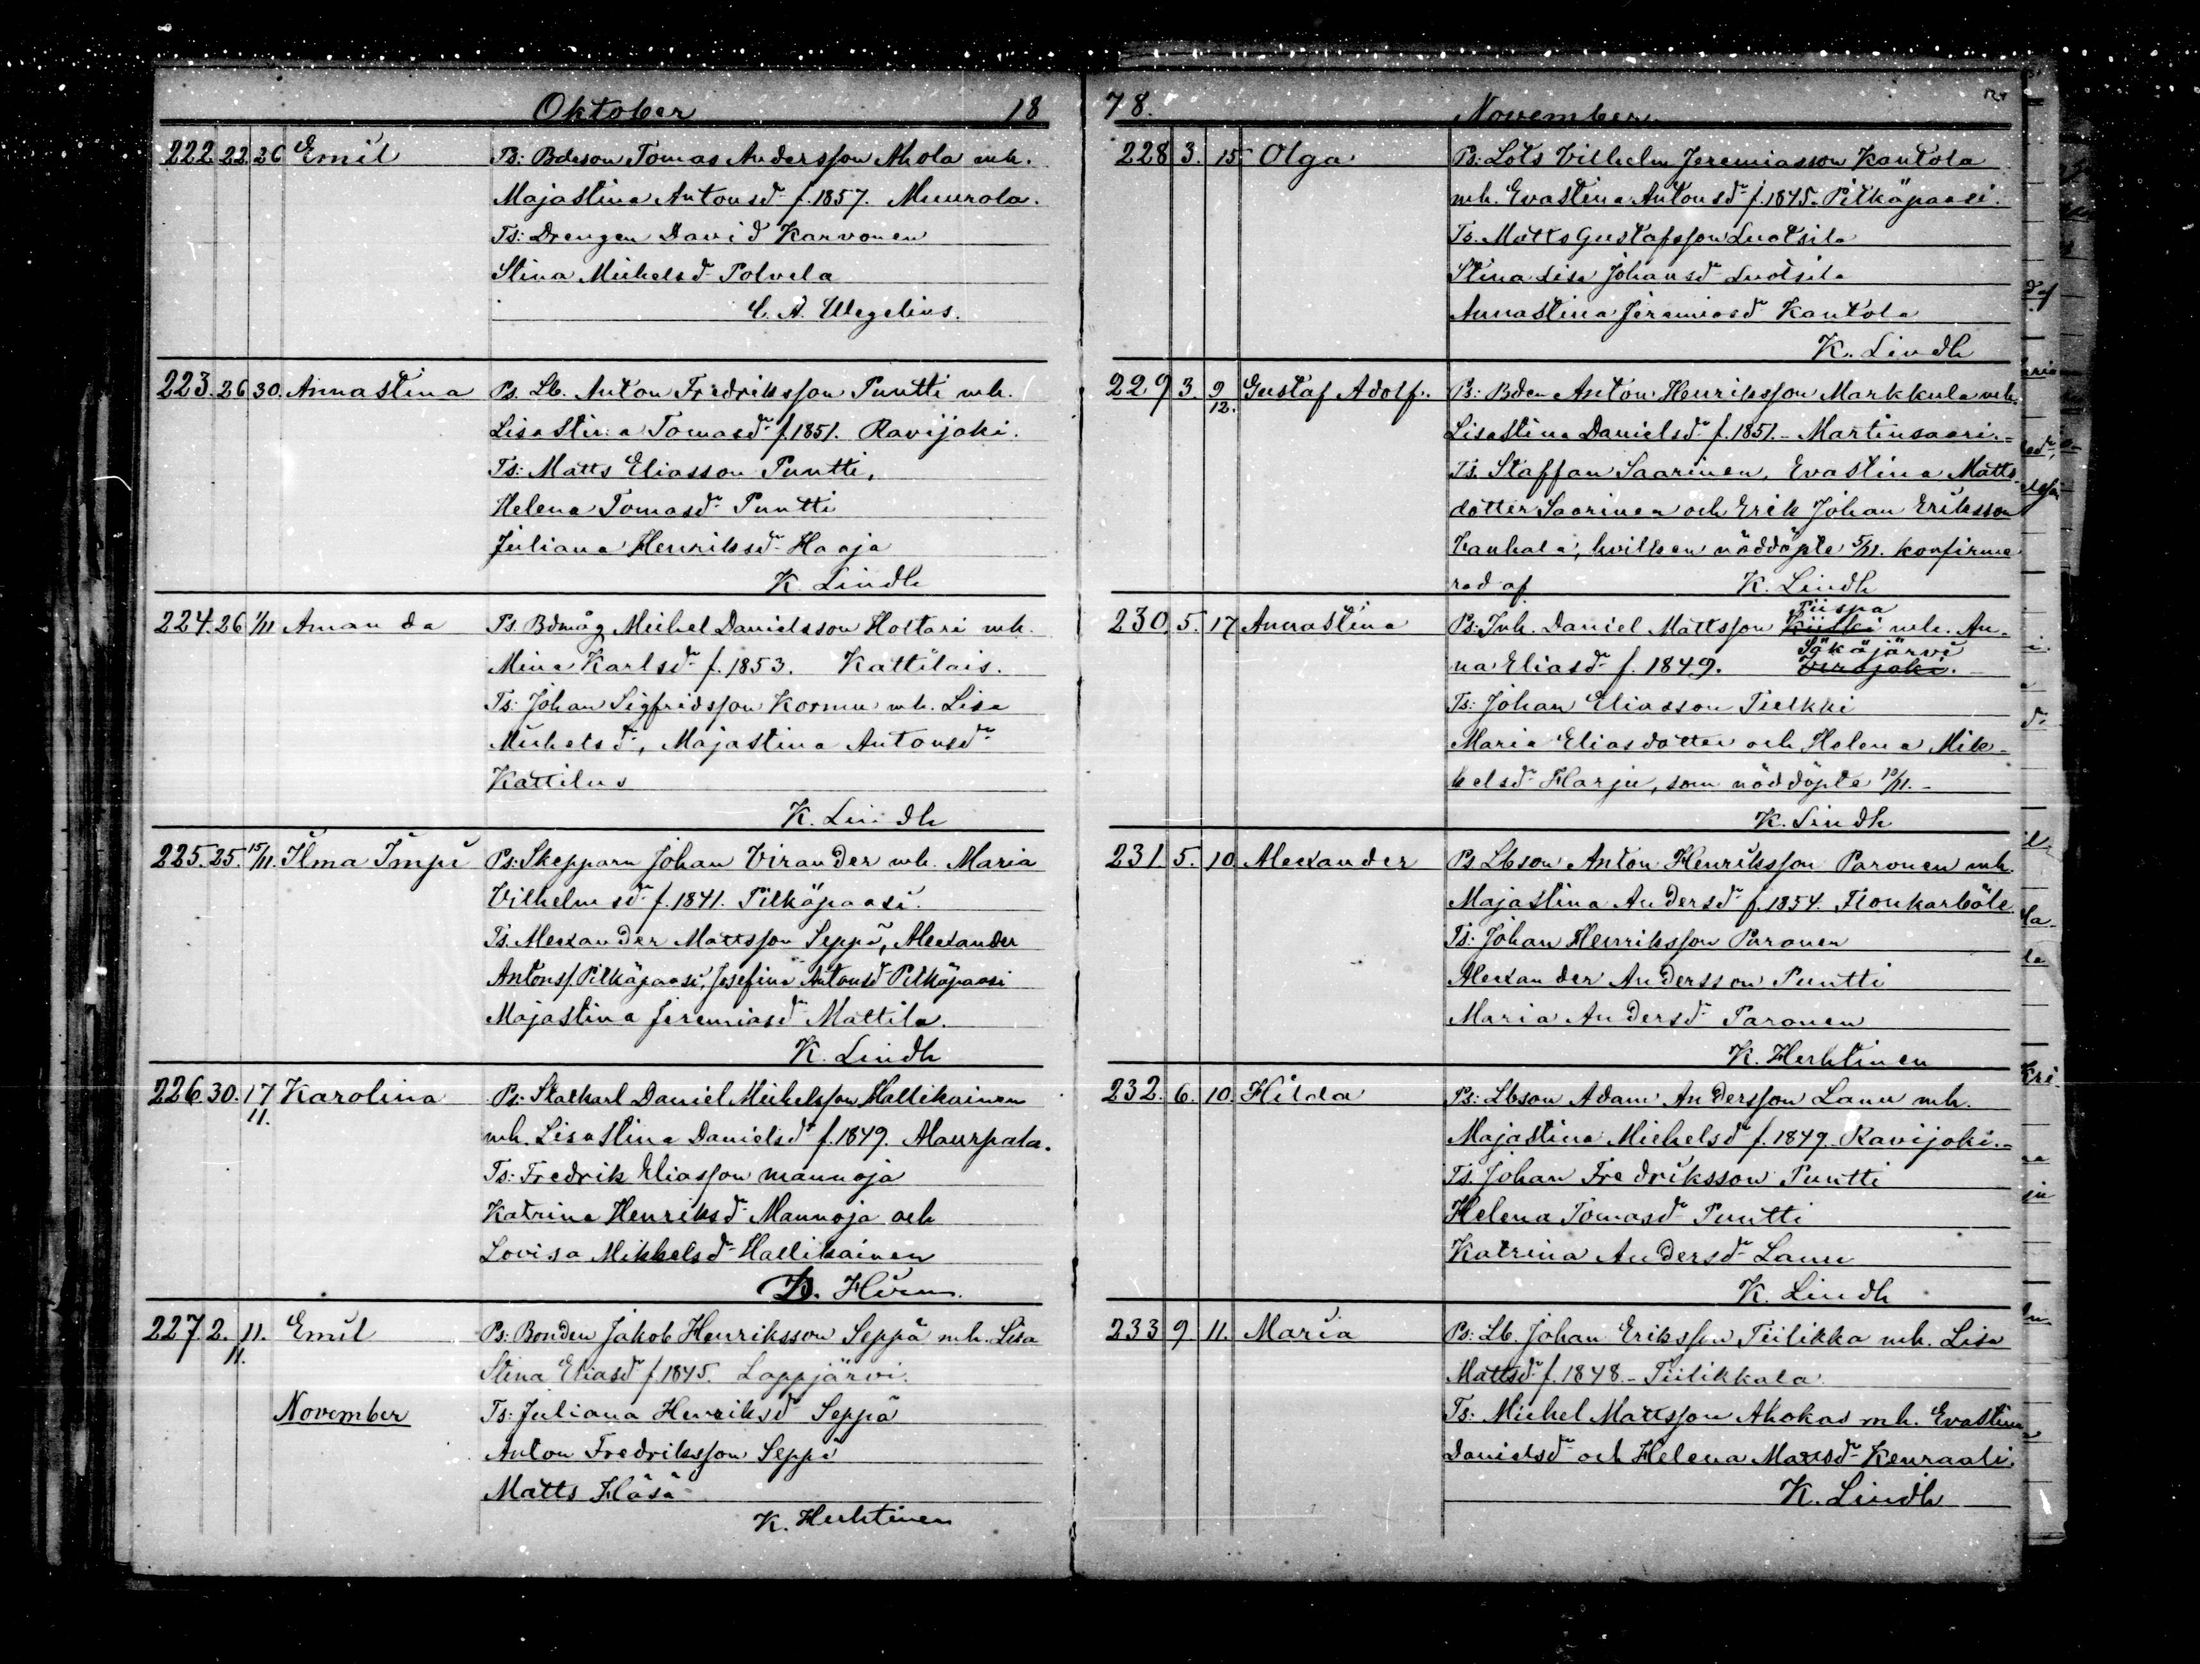 Oktober 18
222. 22. 26 Emil Ps: Bdeson Tomas Andersson Ahola mh.
Majastina Antonsdr f. 1857. Muurola.
Ts: Drengen David Karvonen
Stina Michelsdr Polvela
C. A. Wegelius.
223. 26 30. Annastina Ps. Lb. Anton Fredriksson Puntti mh.
Lisastina Tomasdr f. 1851. Ravijoki.
Ts: Matts Eliasson Puntti,
Helena Tomasdr Puntti
Juliana Henriksdr Haaja
K. Lindh
224. 26 1/11 Amanda Ps. Bdmåg Michel Danielsson Holtari mh.
Mina Karlsdr f. 1853. Kattilais.
Ts: Johan Sigfridsson Kormu mh. Lisa
Michelsdr, Majastina Antonsdr
Kattilus
K. Lindh
225. 25. 15/11. Ilma Impi Ps: Skepparn Johan Virander mh. Maria
Vilhelmsdr f. 1841. Pitkäpaasi.
Ts. Alexander Mattsson Seppä, Alexander
Antonss. Pitkäpaasi, Josefina Antonsd Pitkäpaasi
Majastina Jeremiasdr Mattila.
K. Lindh
226 30. 17 Karolina Ps: Stalkarl Daniel Michelsson Hallikainen
11.
mh. Lisastina Danielsdr f. 1849. Alaurpala.
Ts: Fredrik Eliasson Mannoja
Katrina Henriksdr Mannoja och
Lovisa Mikkelsdr Hallikainen
K. Hirn.
227 2. 11. Emil Ps: Bonden Jakob Henriksson Seppä mh. Lisa
11.
Stina Eliasdr f. 1845. Lappjärvi.
November Ts: Juliana Henriksdr Seppä
Anton Fredriksson Seppä
Matts Häsä
K. Herhtinen
78. November
228 3. 15 Olga Ps: Lots Vilhelm Jeremiasson Kantola
mh. Evastina Antonsdr f. 1845. Pitkäpaasi.
Ts. Matts Gustafsson Luotsila
Stina Lisa Johansdr Luotsila
Annastina Jeremiasdr Kantola
K. Lindh
229 3. 9/12. Gustaf Adolf. Ps: Bden Anton Henriksson Markkula mh.
Lisastina Danielsdr f. 1851. - Martinsaari.
Ts. Staffan Saarinen, Evastina Matts-
dotter Saarinen och Erik Johan Eriksson
Kauhala, hvilken nöddöpte 5/11. konfirme
rad af K. Lindh
Tiispa
230 5. 17 Annastina Ps: Inh. Daniel Mattsson Kiiski mh. An-
Säkäjärvi
na Eliasdr f. 1849. Virojoki. -
Ts: Johan Eliasson Tielkki
Maria Eliasdotter och Helena Mik-
kelsdr Harju, som nöddöpte 10/11. -
K. Lindh
231. 5. 10 Alexander Ps Lbson Anton Henriksson Paronen mh.
Majastina Andersdr f. 1854. Flonkarböle.
Ts: Johan Henriksson Paronen
Alexander Andersson Puntti
Maria Andersdr Paronen
K. Herhtinen
232. 6. 10. Hilda Ps: Lbson Adam Andersson Lanu mh.
Majastina Michelsdr f. 1849. Ravijoki. -
Ts. Johan Fredriksson Puntti
Helena Tomasdr Puntti
Katrina Andersdr Lanu
K. Lindh
233 9. 11. Maria Ps: Lb. Johan Eriksson Tiilikka mh. Lisa
Mattsdr f. 1848. - Tiilikkala
Ts: Michel Mattsson Ahokas mh. Evastina
Danielsdr och Helena Mattsdr Kenraali.
K. Lindh